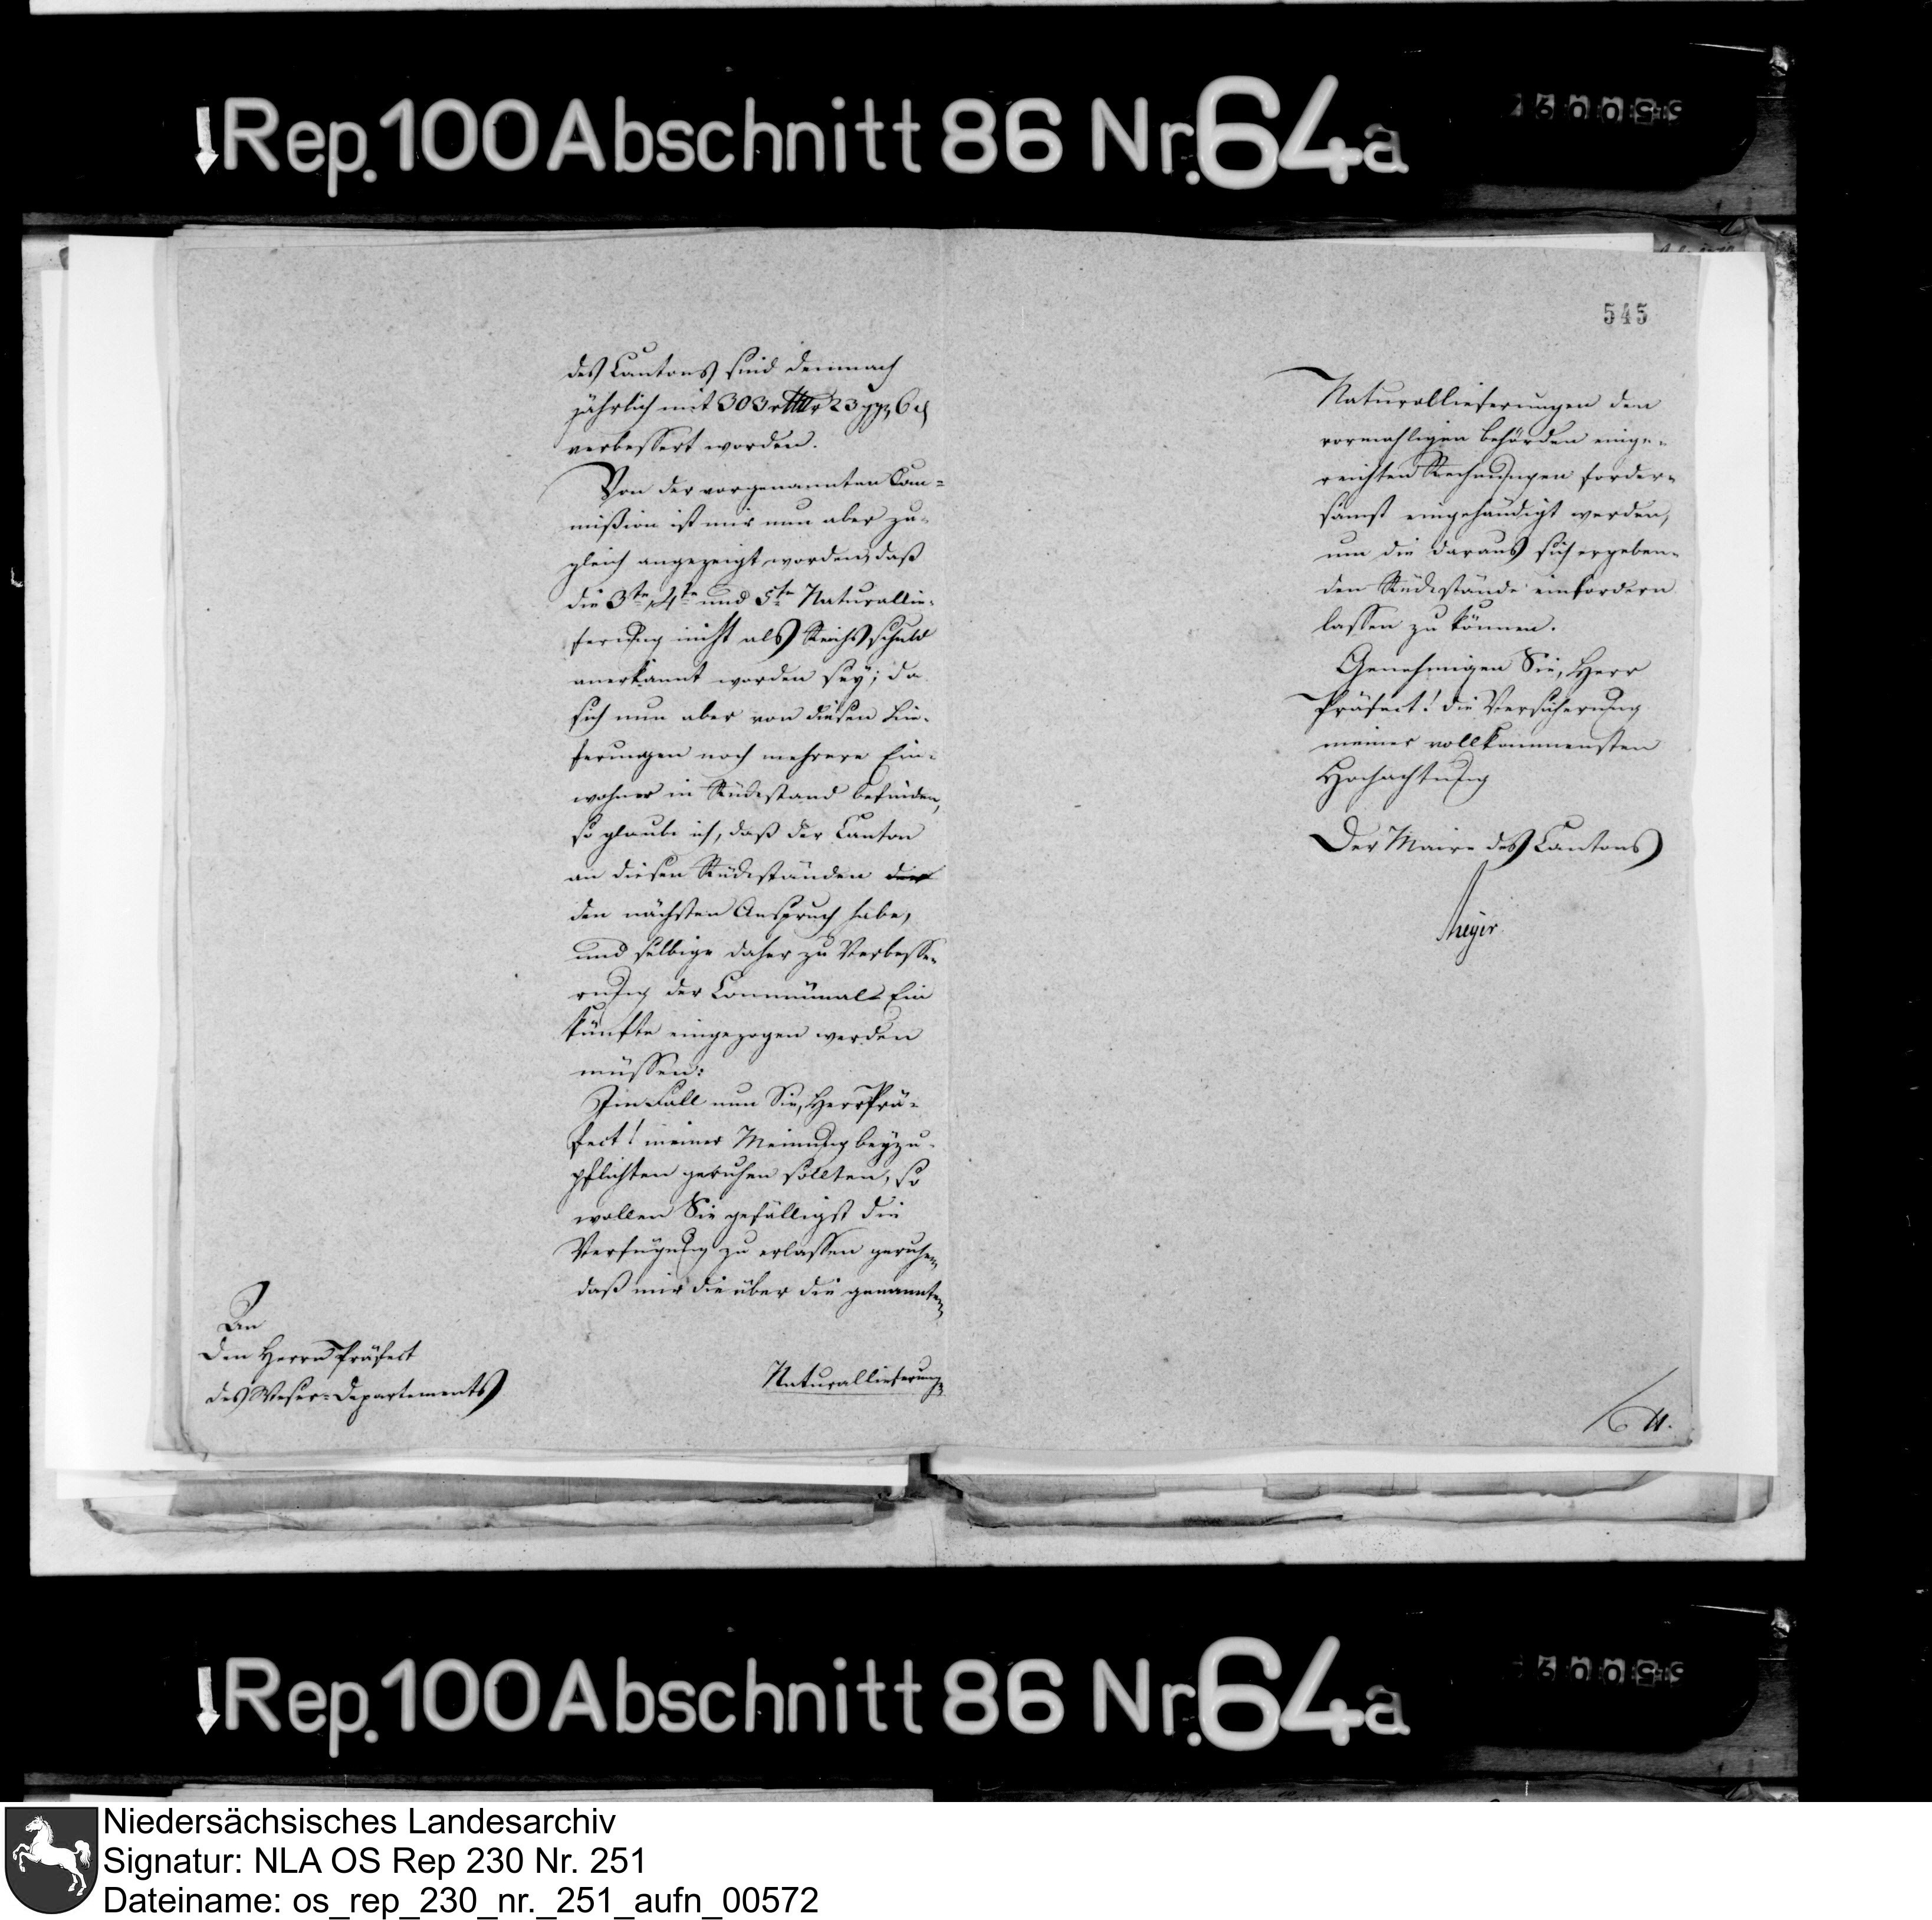 Rep. 100 Abschnitt 86 Nr. 64a
545
des Cantons sind demnach
jährlich mit 303 rthlr 23 ggr 6 d
verbessert worden.
Von der vorgenannten Com=
mißion ist mir nun aber zu=
gleich angezeigt worden, daß
die 3te, 4te und 5te Naturallie=
ferung nicht als Reichsschuld
anerkannt worden sey; da
sich nun aber von diesen Lie=
ferungen noch mehrere Ein=
wohner in Rückstand befinden,
so glaube ich, daß der Canton
an diesen Rückständen
den nächsten Anspruch habe,
und selbige daher zu Verbesse=
rung der Communal= Ein
künfte eingezogen werden
müssen:
Im Fall nun Sie, Herr Prä=
fect! meiner Meinung beyzu=
pflichten geruhen sollten, so
wollen Sie gefälligst die
Verfügung zu erlassen geruhen,
daß mir die über die genannten
An
den Herrn Präfect
des Weser=Departements
Naturallieferung
Naturallieferungen den
vormahligen Behörden einge=
reichten Rechnungen forder=
samst eingehändigt werden,
um die daraus sich ergeben=
den Rückstände einfordern
lassen zu können.
Genehmigen Sie, Herr
Präfect! die Versicherung
meiner vollkommensten
Hochachtung
Der Maire des Cantons
Meyer
Rep. 100 Abschnitt 86 Nr. 64a
Niedersächsisches Landesarchiv
Signatur: NLA OS Rep 230 Nr. 251
Dateiname: os_rep_230_nr._251_aufn_00572